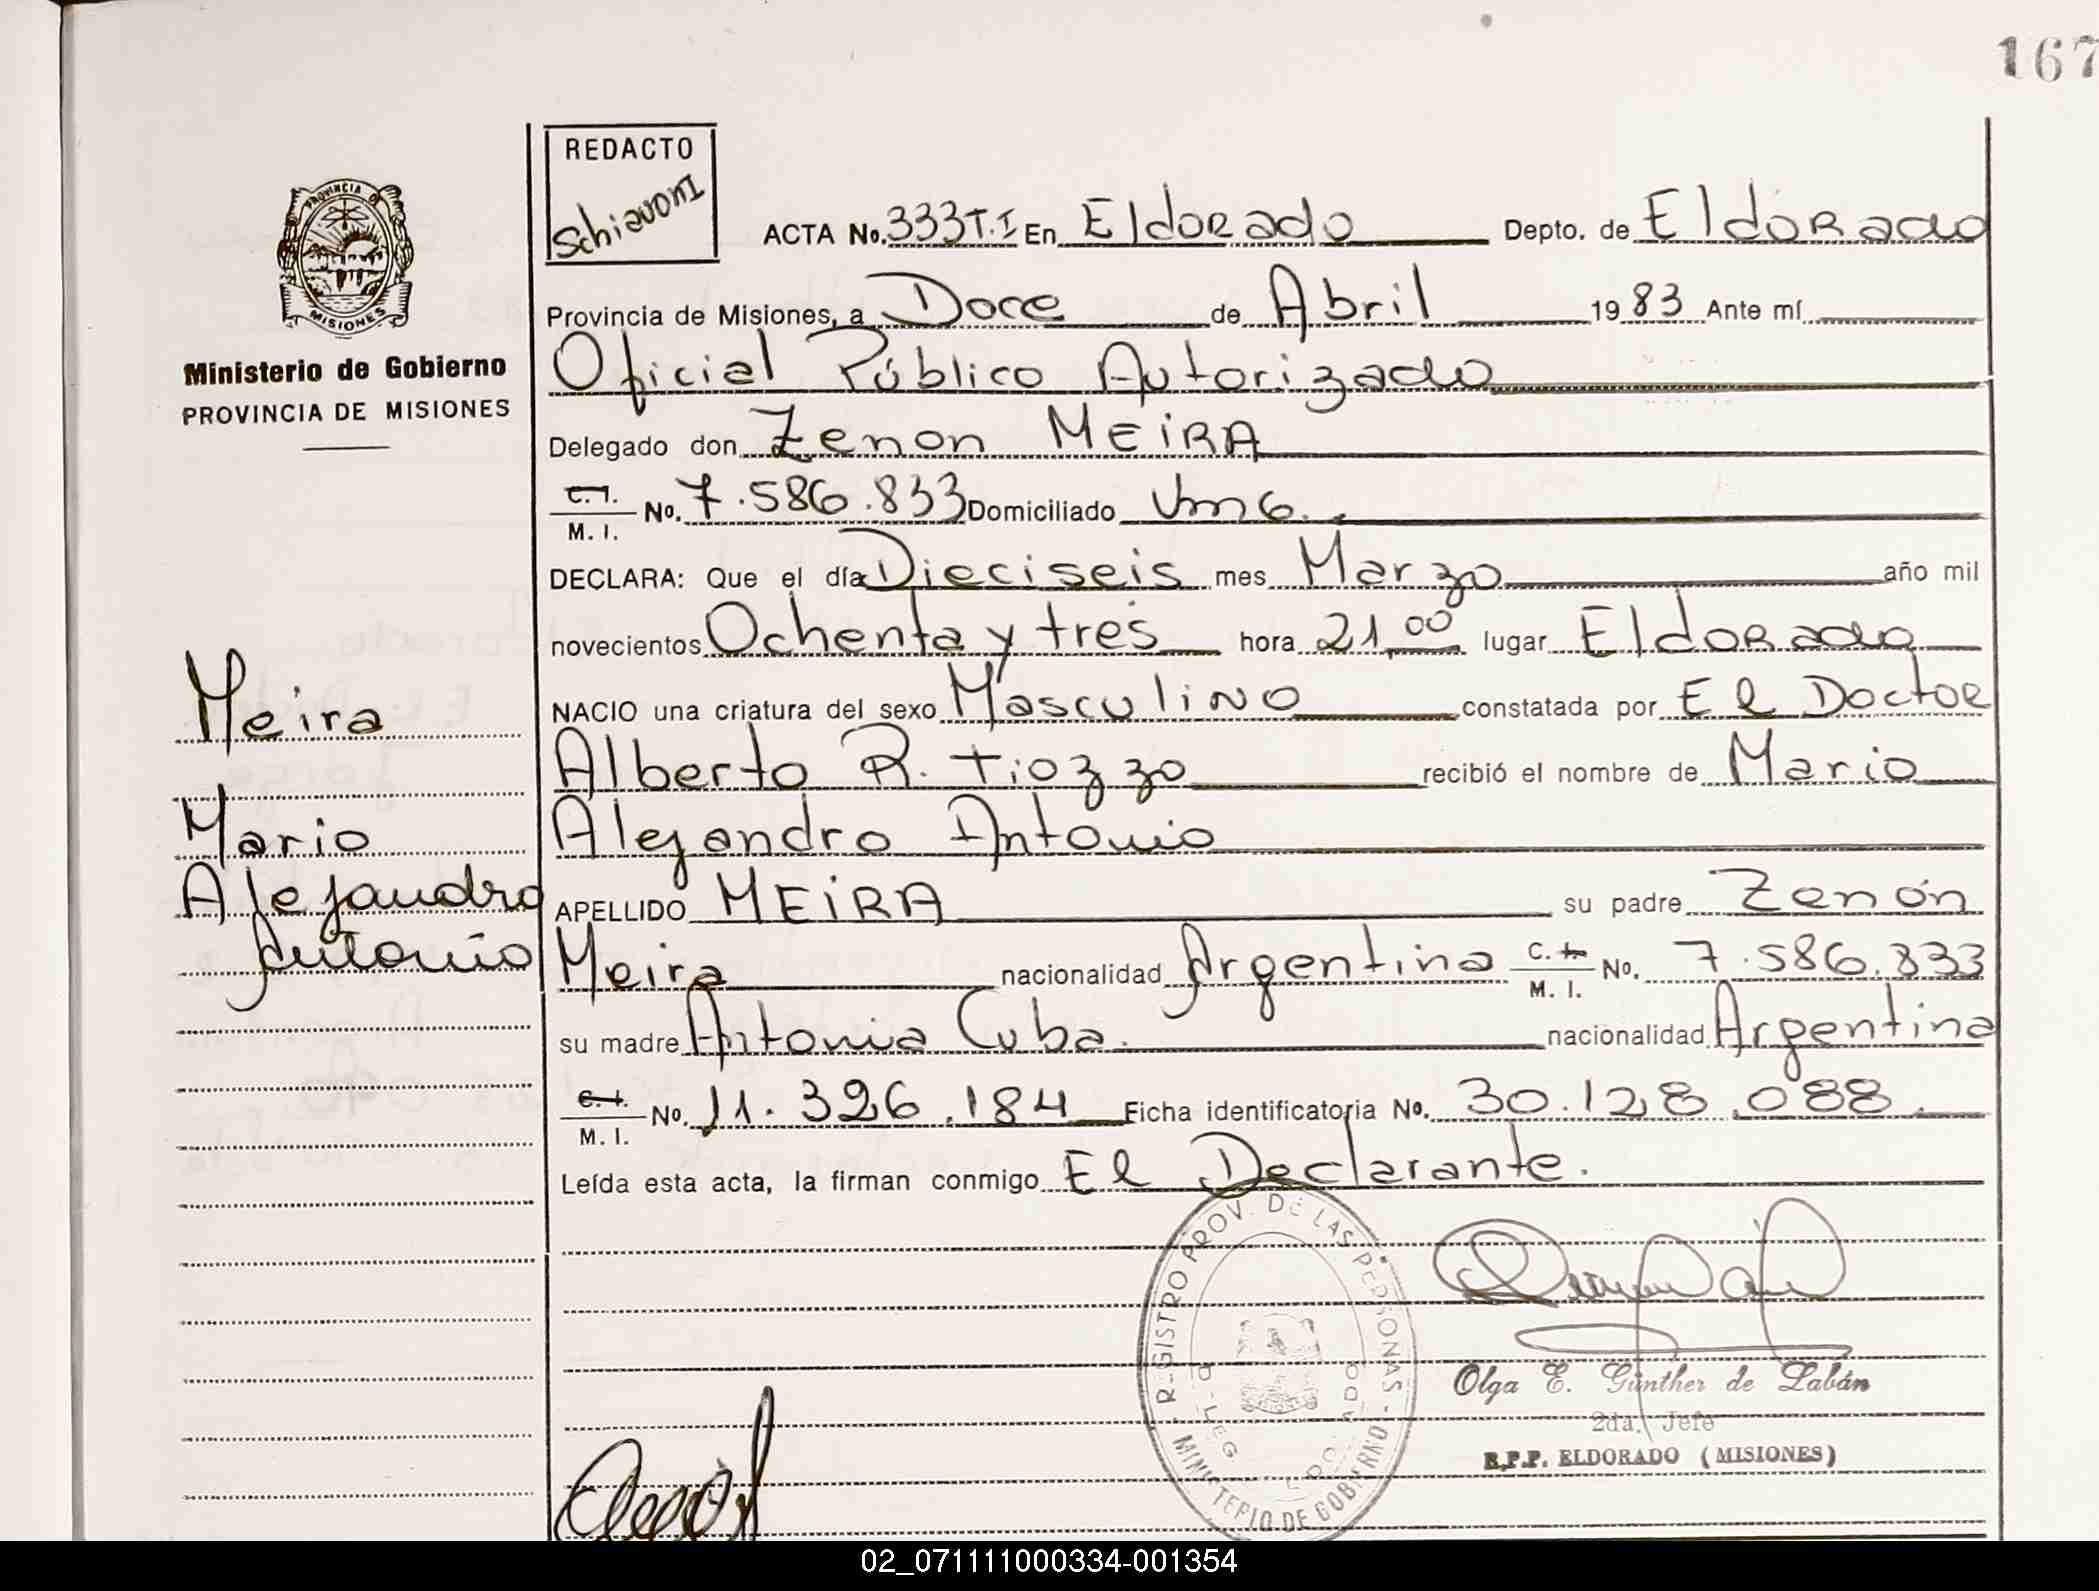 167
REDACTO
Schiavoni
ACTA No. 333 T.I En Eldorado Depto. de Eldorado
Provincia de Misiones, a Doce de Abril 1983 Ante mí
Oficial Público Autorizado
Delegado don Zenon MEiRA
C.I. M.I. No. 7.586.833 Domiciliado
DECLARA: Que el día Dieciseis mes Marzo año mil
novecientos Ochenta y tres hora 21,00 lugar Eldorado
NACIO una criatura del sexo Masculino constatada por El Doctor
Alberto R. Tiozzo recibió el nombre de Mario
Alejandro Antonio
APELLIDO MEiRA su padre Zenón
Meira nacionalidad Argentina C.I. M.I. No. 7.586.833
su madre Antonia Cuba. nacionalidad Argentina
C.I. M.I. No. 11.326.184 Ficha identificatoria No. 30.128.088
Leída esta acta, la firman conmigo El Declarante.
PROVINCIA DE
MISIONES
Ministerio de Gobierno
PROVINCIA DE MISIONES
Meira
Mario
Alejandro
Antonio
REGISTRO PROV. DE LAS PERSONAS - MINISTERIO DE GOBIERNO
Olga E. Günther de Labán
2da. Jefe
R.P.P. ELDORADO (MISIONES)
02_071111000334-001354